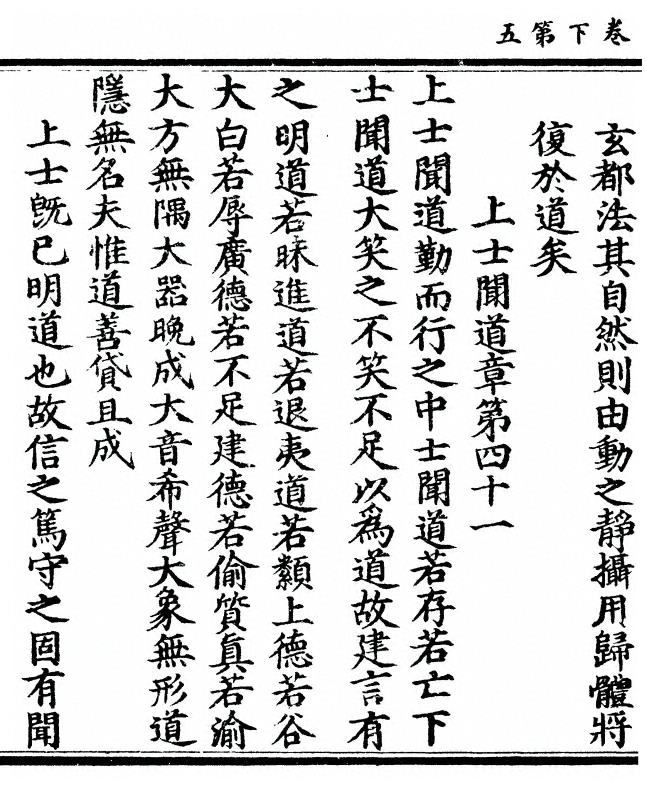 卷下第五
玄都法其自然則由動之靜攝用歸體將
復於道矣
上士聞道章第四十一
上士聞道勤而行之中士聞道若存若亡下
士聞道大笑之不笑不足以爲道故建言有
之明道若昧進道若退夷道若纇上德若谷
大白若辱廣德若不足建德若偷質真若渝
大方無隅大器晚成大音希聲大象無形道
隱無名夫惟道善貸且成
上士旣已明道也故信之篤守之固有聞